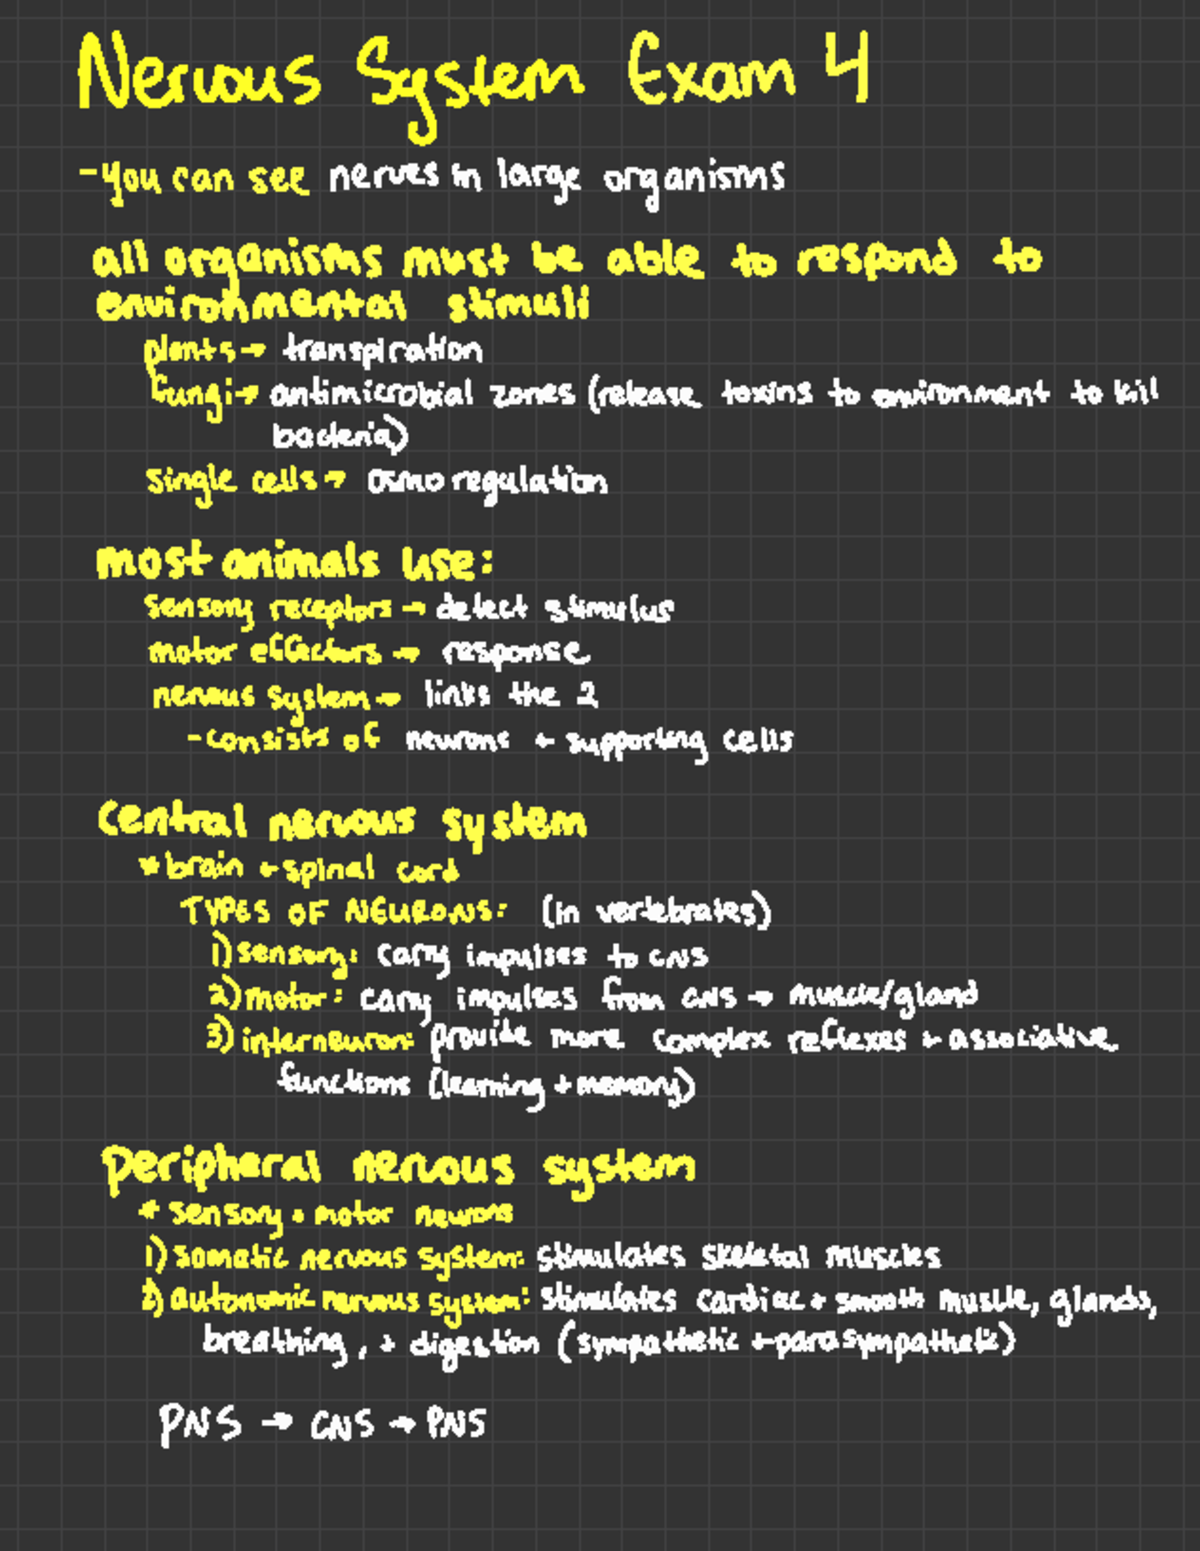 Nervous System Exam 4
-you can see nerves in large organisms
all organisms must be able to respond to
environmental stimuli
plants→ transpiration
fungi→ antimicrobial zones (release toxins to environment to kill
bacteria)
single cells→ osmoregulation
most animals use:
sensory receptors → detect stimulus
motor effectors → response
nervous system→ links the 2
-consists of neurons + supporting cells
Central nervous system
*brain + spinal cord
TYPES OF NEURONS: (in vertebrates)
1) sensory: carry impulses to CNS
2) motor: carry impulses from CNS → muscle/gland
3) interneuron: provide more complex reflexes + associative
functions (learning + memory)
peripheral nervous system
* sensory + motor neurons
1) somatic nervous system: stimulates skeletal muscles
2) autonomic nervous system: stimulates cardiac + smooth muscle, glands,
breathing, + digestion (sympathetic + parasympathetic)
PNS → CNS → PNS